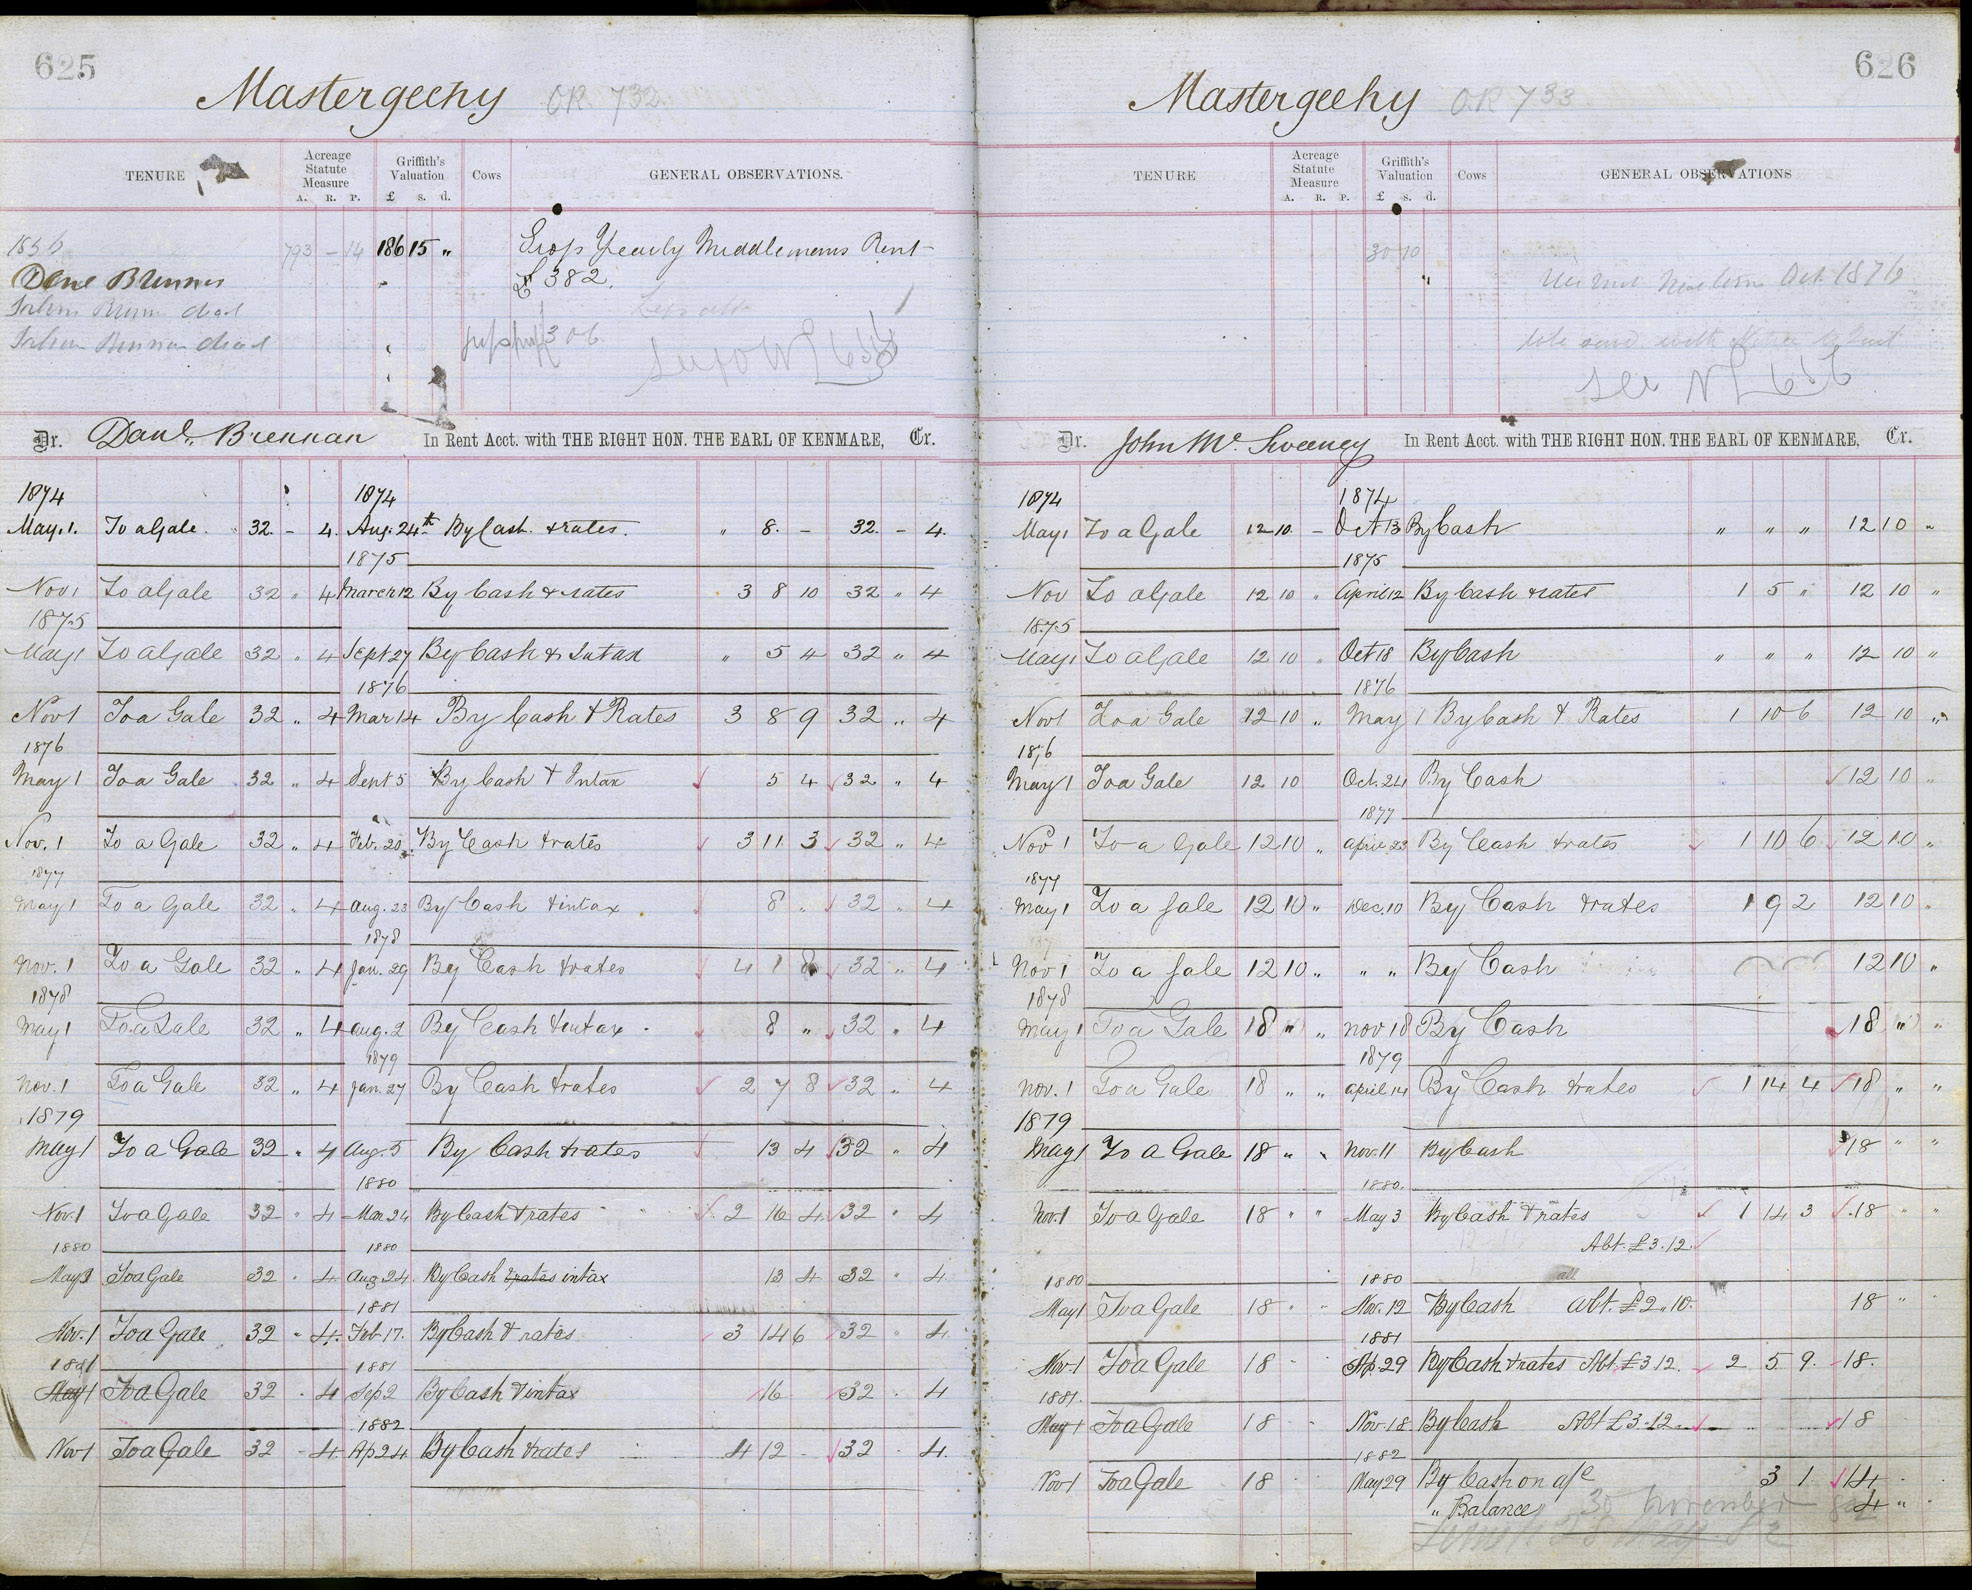 625
Mastergeehy OR 732
TENURE
Acreage Statute Measure A. R. P.
Griffith's Valuation £ s. d.
Cows
GENERAL OBSERVATIONS.
793 - 14 186 15 „ Yearly Middlemans Rent
£382.
Brennan dead
306
Dr. Danl. Brennan In Rent Acct. with THE RIGHT HON. THE EARL OF KENMARE, Cr.
1874 1874
May. 1. To a Gale. 32. - 4. Aug. 24th By Cash & rates. „ 8. - 32. - 4.
1875
Nov 1 To a Gale 32 „ 4 March 12 By Cash & rates 3 8 10 32 „ 4
1875
May 1 To a Gale 32 „ 4 Sept 27 By Cash & Intax „ 5 4 32 „ 4
1876
Nov 1 To a Gale 32 „ 4 Mar 14 By Cash & Rates 3 8 9 32 „ 4
1876
May 1 To a Gale 32 „ 4 Sept 5 By Cash & Intax 5 4 32 „ 4
Nov. 1 To a Gale 32 „ 4 Feb. 20 By Cash & rates 3 11 3 32 „ 4
1877
May 1 To a Gale 32 „ 4 Aug. 23 By Cash & intax 8 „ 32 „ 4
1878
Nov. 1 To a Gale 32 „ 4 Jan. 29 By Cash & rates 4 1 8 32 „ 4
1878
May 1 To a Gale 32 „ 4 Aug. 2 By Cash & intax 8 „ 32 „ 4
1879
Nov. 1 To a Gale 32 „ 4 Jan. 27 By Cash & rates 2 7 8 32 „ 4
1879
May 1 To a Gale 32 „ 4 Aug. 5 By Cash & rates 13 4 32 „ 4
1880
Nov. 1 To a Gale 32 „ 4 Mar 24 By Cash & rates 2 16 4 32 „ 4
1880 1880
May 1 To a Gale 32 „ 4 Aug 24 By Cash & rates intax 13 4 32 „ 4
1881
Nov. 1 To a Gale 32 „ 4. Feb 17. By Cash & rates 3 14 6 32 „ 4.
1881 1881
May 1 To a Gale 32 . 4 Sep 2 By Cash & intax 16 32 . 4
1882
Nov 1 To a Gale 32 - 4. Ap 24 By Cash & rates 4 12 - 32 . 4.
626
Mastergeehy OR 733
TENURE
Acreage Statute Measure A. R. P.
Griffith's Valuation £ s. d.
Cows
GENERAL OBSERVATIONS
30 10
Oct. 1876
with Notice to Quit
See NL 656
Dr. John Mc Sweeney In Rent Acct. with THE RIGHT HON. THE EARL OF KENMARE, Cr.
1874 1874
May 1 To a Gale 12 10 - Oct 13 By Cash „ „ „ 12 10 „
1875
Nov To a Gale 12 10 „ April 12 By Cash & rates 1 5 „ 12 10 „
1875
May 1 To a Gale 12 10 „ Oct 18 By Cash „ „ „ 12 10 „
1876
Nov 1 To a Gale 12 10 „ May 1 By Cash & Rates 1 10 6 12 10 „
1876
May 1 To a Gale 12 10 Oct. 24 By Cash 12 10 „
1877
Nov 1 To a Gale 12 10 „ April 23 By Cash & rates 1 10 6 12 10 „
1877
May 1 To a Gale 12 10 „ Dec. 10 By Cash & rates 1 9 2 12 10 „
Nov 1 To a Gale 12 10 „ „ „ By Cash 12 10 „
1878
May 1 To a Gale 18 „ „ Nov 18 By Cash 18 „ „
1879
Nov. 1 To a Gale 18 „ „ April 14 By Cash & rates 1 14 4 18 „ „
1879
May 1 To a Gale 18 „ „ Nov. 11 By Cash 18 „ „
1880.
Nov 1 To a Gale 18 „ „ May 3 By Cash & rates 1 14 3 18 „ „
Abt. £3.12.
1880 1880
May 1 To a Gale 18 „ „ Nov. 12 By Cash Abt. £2„10. 18 „
1881
Nov 1 To a Gale 18 Ap. 29 By Cash & rates Abt. £3 12. 2 5 9. 18.
1881.
May 1 To a Gale 18 Nov. 18 By Cash Abt £3.12 18
1882
Nov 1 To a Gale 18 May 29 By Cash on a/c 3 1 14 .
„ Balance 4 „